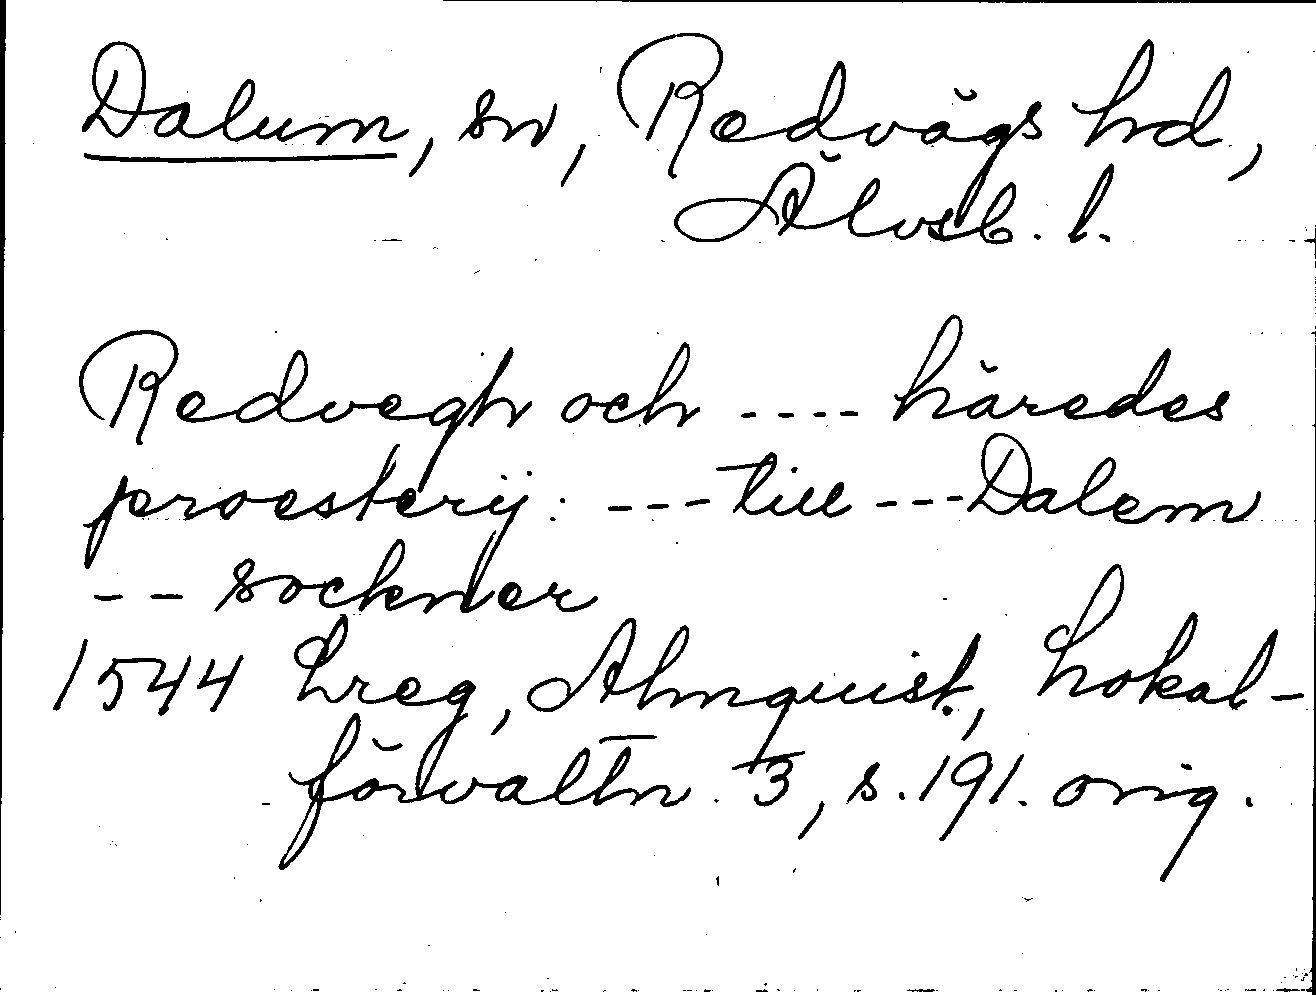 Dalum, sn, Redvägs hd,
Älvsb. l.
Redvegh och ---- häredes
proesterij: --- till --- Dalem
-- sockner
1544 Lreg, Almquist, Lokal-
förvaltn. 3, s. 191. orig.